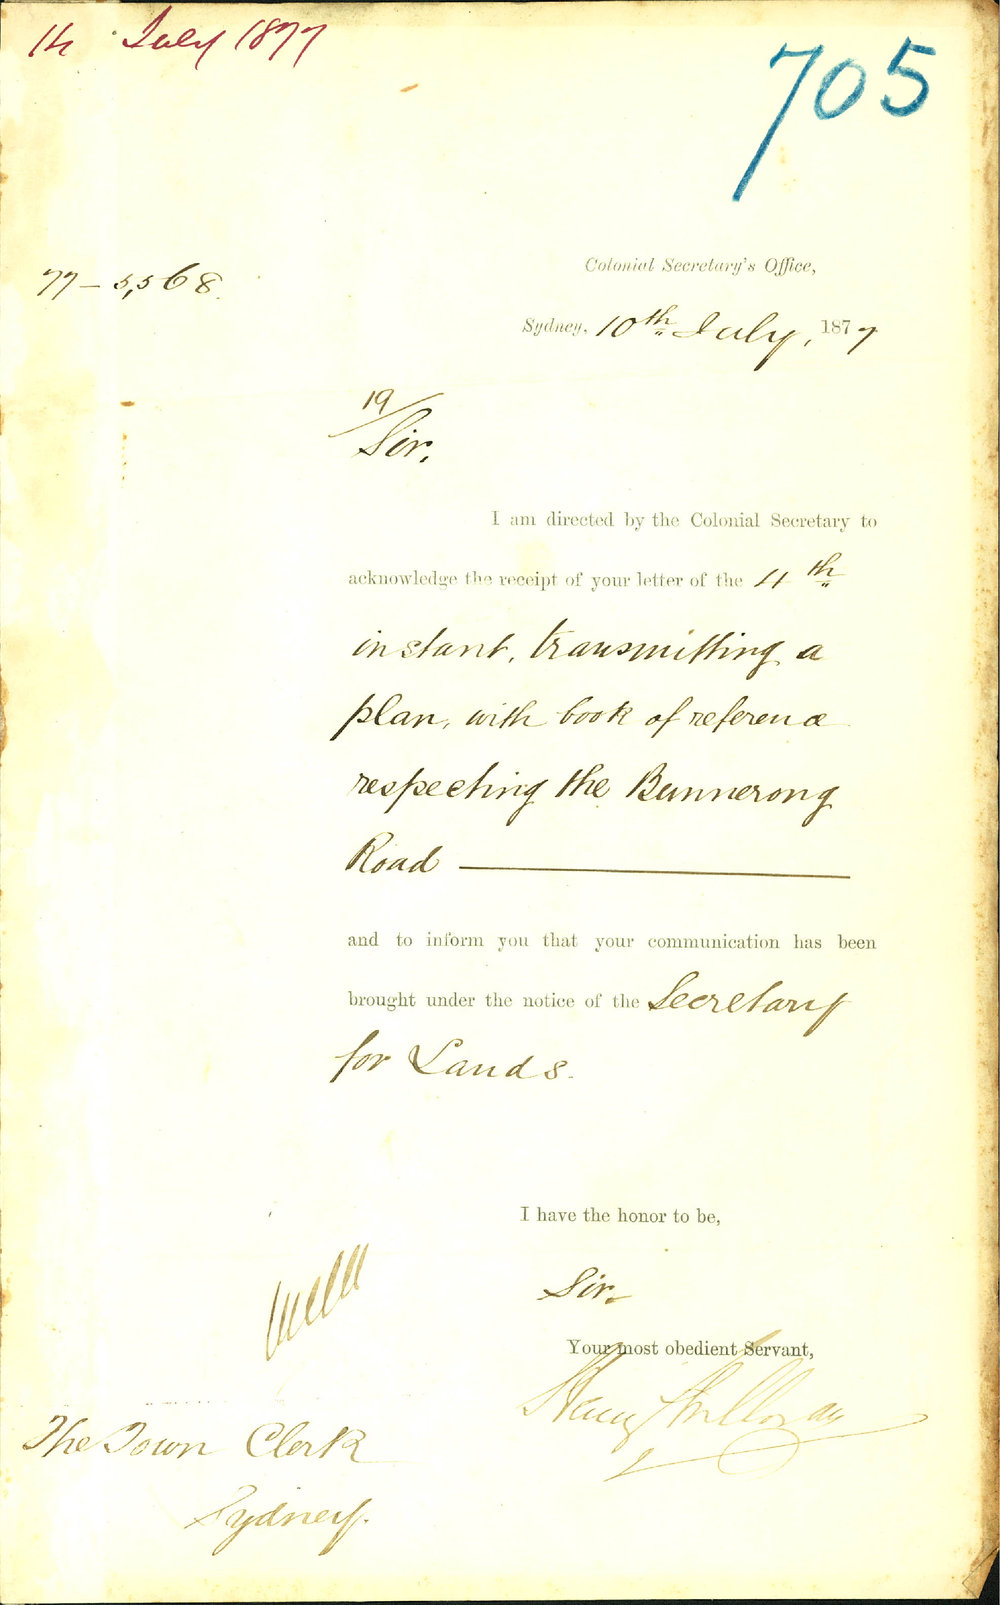 14 July 1877
705
Colonial Secretary's Office,
77–5,568.
Sydney, 10th July, 1877
19
Sir,
I am directed by the Colonial Secretary to
acknowledge the receipt of your letter of the 4th
instant, transmitting a
plan, with book of reference
respecting the Bunnerong
Road
and to inform you that your communication has been
brought under the notice of the Secretary
for Lands.
I have the honor to be,
Sir,
Your most obedient Servant,
Henry Halloran
The Town Clerk
Sydney.